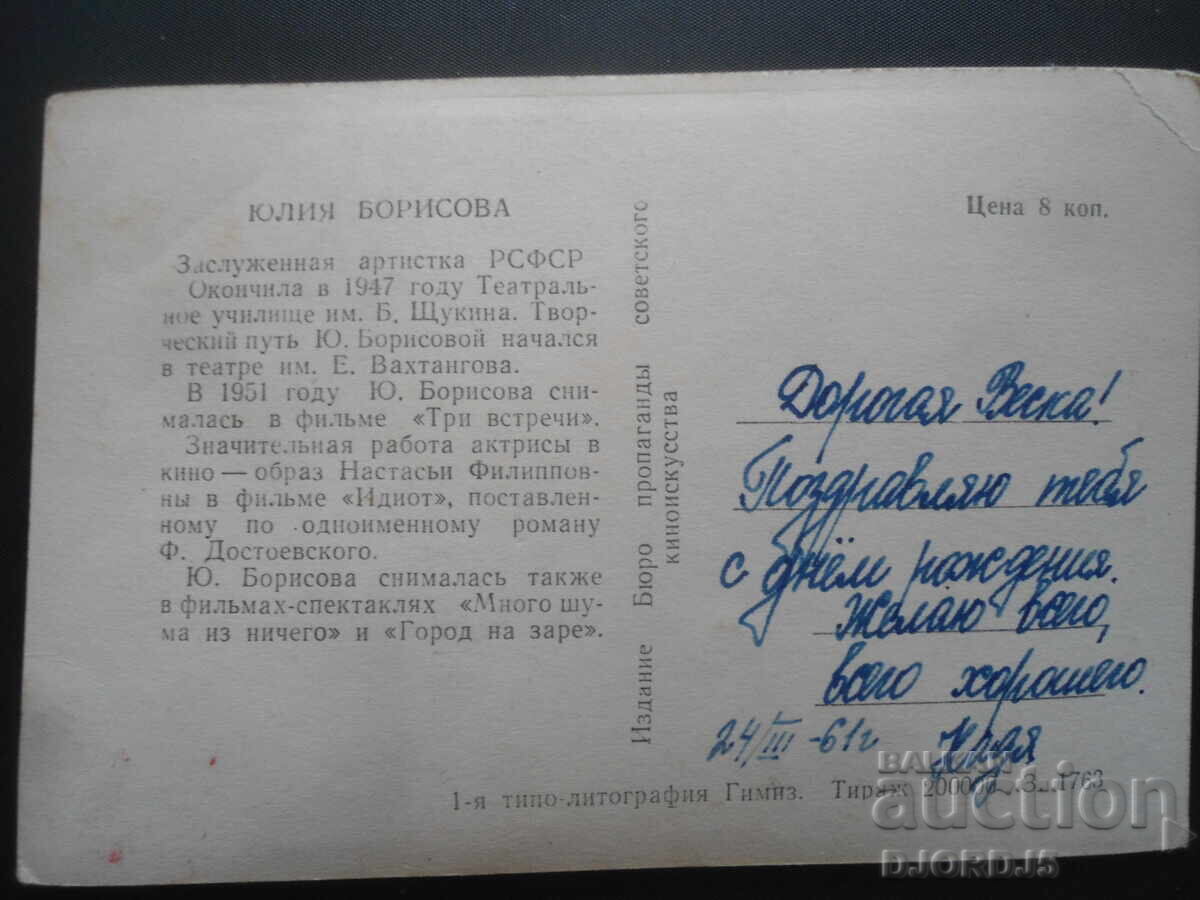 ЮЛИЯ БОРИСОВА
Заслуженная артистка РСФСР
Окончила в 1947 году Театраль-
ное училище им. Б. Щукина. Твор-
ческий путь Ю. Борисовой начался
в театре им. Е. Вахтангова.
В 1951 году Ю. Борисова сни-
малась в фильме «Три встречи».
Значительная работа актрисы в
кино — образ Настасьи Филиппов-
ны в фильме «Идиот», поставлен-
ному по одноименному роману
Ф. Достоевского.
Ю. Борисова снималась также
в фильмах-спектаклях «Много шу-
ма из ничего» и «Город на заре».
Издание Бюро пропаганды советского
киноискусства
Цена 8 коп.
Дорогая Веска!
Поздравляю тебя
с днём рождения.
Желаю всего,
всего хорошего.
24/III -61г
1-я типо-литография Гимиз. Тираж 200000 З. 1763
BALKAN
auction
DJORDJ5